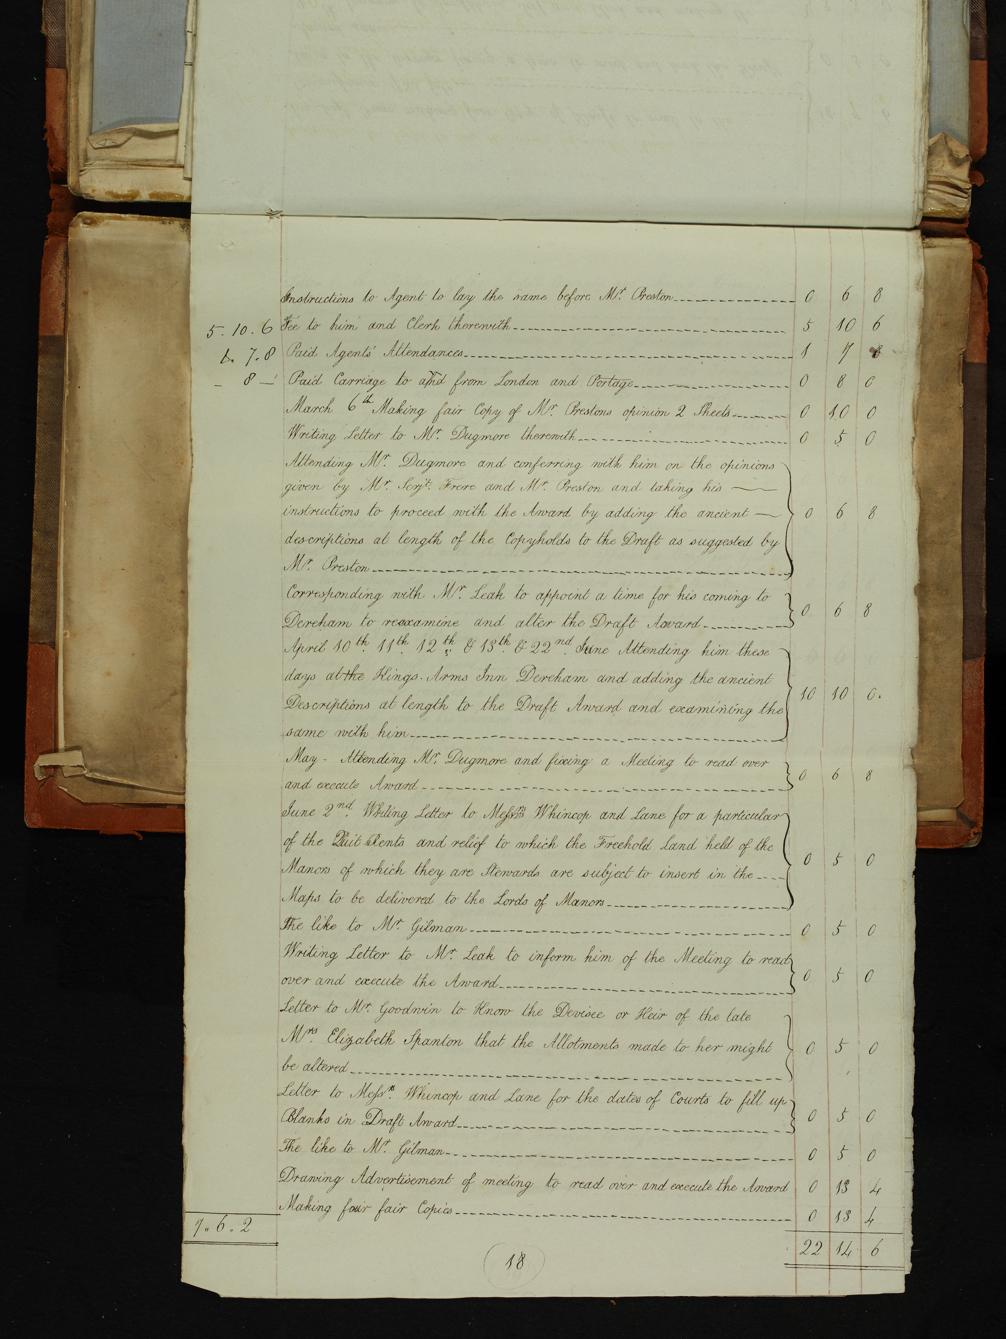 Instructions to Agent to lay the same before Mr. Preston 0 6 8
5.10.6 Fee to him and Clerk therewith 5 10 6
1.7.8 Paid Agents' Attendances 1 7 8
- 8 - Paid Carriage to and from London and Portage 0 8 0
March 6th Making fair Copy of Mr. Prestons opinion 2 Sheets 0 10 0
Writing Letter to Mr. Dugmore therewith 0 5 0
Attending Mr. Dugmore and conferring with him on the opinions
given by Mr. Serjt. Frere and Mr. Preston and taking his
instructions to proceed with the Award by adding the ancient 0 6 8
descriptions at length of the Copyholds to the Draft as suggested by
Mr. Preston
Corresponding with Mr. Leak to appoint a time for his coming to
Dereham to reexamine and alter the Draft Award 0 6 8
April 10th 11th 12th & 13th & 22nd June Attending him these
days at the Kings Arms Inn Dereham and adding the ancient
Descriptions at length to the Draft Award and examining the 10 10 0
same with him
May - Attending Mr. Dugmore and fixing a Meeting to read over
and execute Award 0 6 8
June 2nd. Writing Letter to Messrs Whincop and Lane for a particular
of the Quit Rents and relief to which the Freehold Land held of the
Manors of which they are Stewards are subject to insert in the 0 5 0
Maps to be delivered to the Lords of Manors
The like to Mr. Gilman 0 5 0
Writing Letter to Mr. Leak to inform him of the Meeting to read
over and execute the Award 0 5 0
Letter to Mr. Goodwin to Know the Devisee or Heir of the late
Mrs Elizabeth Spanton that the Allotments made to her might 0 5 0
be altered
Letter to Messrs. Whincop and Lane for the dates of Courts to fill up
Blanks in Draft Award 0 5 0
The like to Mr. Gilman 0 5 0
Drawing Advertisement of meeting to read over and execute the Award 0 13 4
Making four fair Copies 0 13 4
7.6.2
22 14 6
18